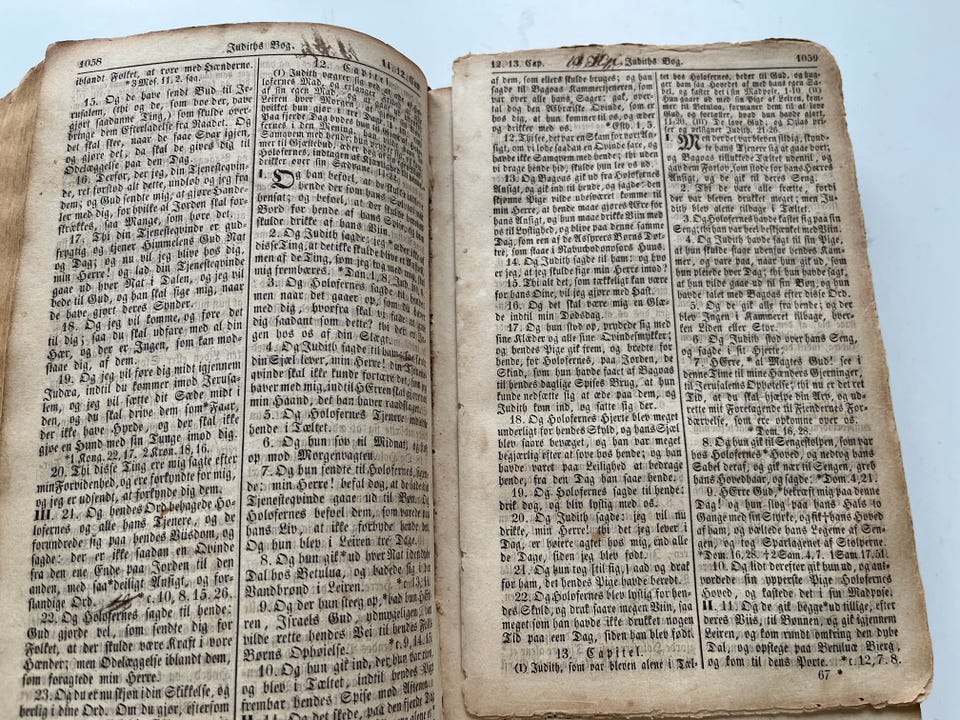 1058
Judiths Bog.
11. 12. Cap.
iblandt Folket, at røre med Hænderne.
*3 Mos. 11, 2. fag.
15. Og de have sendt Bud til Je-
rusalem, (thi og de, som boe der, have
gjort saadanne Ting,) som skulde
bringe dem Efterladelse fra Raadet. Og
det skal skee, naar de faae Svar igjen,
og gjøre det, da skal de gives dig til
Ødelæggelse paa den Dag.
16. Derfor, der jeg, din Tjenesteqvin-
de, ret forstod alt dette, undløb og jeg fra
dem; og Gud sendte mig, at gjøre Hand-
ler med dig, for hvilke al Jorden skal for-
skrækkes, saa Mange, som høre det.
17. Thi din Tjenesteqvinde er gud-
frygtig og tjener Himmelens Gud Nat
og Dag; og nu vil jeg blive hos dig,
min Herre! og lad din Tjenesteqvinde
gaae ud hver Nat i Dalen, og jeg vil
bede til Gud, og han skal sige mig, naar
de have gjort deres Synder.
18. Og jeg vil komme, og føre det
til dig; saa du skal udfare med al din
Hær, og der er Ingen, som kan mod-
staae dig, af dem.
19. Og jeg vil føre dig midt igjennem
Judæa, indtil du kommer imod Jerusa-
lem, og jeg vil sætte dit Sæde midt i
den, og du skal drive dem som *Faar,
der ikke have Hyrde, og der skal ikke
gjøe en Hund med sin Tunge imod dig.
*1 Kong. 22, 17. 2 Krøn. 18, 16.
20. Thi disse Ting ere mig sagte efter
min Forvidenhed, og ere forkyndte for mig,
og jeg er udsendt, at forkynde dig dem.
III. 21. Og hendes Ord behagede Ho-
lofernes og alle hans Tjenere, og de
forundrede sig paa hendes Viisdom, og
sagde: der er ikke saadan en Qvinde
fra den ene Ende paa Jorden til den
anden, med saa *deiligt Ansigt, og for-
standige Ord. *c. 10, 8. 15. 26.
22. Og Holofernes sagde til hende:
Gud gjorde vel, som sendte dig for
Folket, at der skulde være Kraft i vore
Hænder; men Ødelæggelse iblandt dem,
som foragtede min Herre.
23. Og du er nu skjøn i din Skikkelse, og
herlig i dine Ord. Om du gjør, eftersom
12. Capitel.
(I) Judith værger sig ved
1. Og han befoel, at de skulde
hende der
hensat; og befoel, at der skulde
Bord for hende af hans
skulde drikke af hans Viin.
2. Og Judith sagde: jeg *æder
disse Ting, at det ikke skulde
men af de Ting, som jeg tog med
mig frembæres. *Dan. 1, 8.
3. Og Holofernes sagde til
men naar det gaaer op, som
med dig, hvorfra skal vi faae
dig saadant som dette? thi der er
gen hos os af din Slægt.
4. Og Judith sagde til ham:
din Sjæl lever, min Herre! din Tjeneste-
qvinde skal ikke kunde fortære det, som
haver med mig, indtil HErren skal gjøre
min Haand, det han haver raadslaget.
5. Og Holofernes Tjenere
hende i Tæltet.
6. Og hun sov til Midnat,
op mod Morgenvagten.
7. Og hun sendte til Holofernes,
de: min Herre! befal dog, at de lade
Tjenesteqvinde gaae ud til Bøn. Og
Holofernes befoel dem, som varede paa
hans Liv, at ikke forbyde hende
Og hun blev i Leiren tre Dage.
8. Og hun gik *ud hver Nat i den dybe
Dal hos Betulua, og badede sig
Vandbrønd i Leiren. *c. 13, 11.
9. Og der hun steeg op, *bad hun
ren, Israels Gud ydmygeligen,
vilde rette hendes Vei til hendes Folks
Børns Ophøielse.
10. Og hun gik ind, der hun var
og blev i Tæltet, indtil hendes Pige
frembar hendes Spise mod Aftenen.
II. 11. Og det skede, paa den fjerde Dag
12. 13. Cap.
Judiths Bog.
1059
af dem, som ellers skulde bruges; og han
sagde til Bagoas Kammertjeneren, som
var over alle hans Sager: gak, over-
tal dog den Ebræiske Qvinde, som er
hos dig, at hun kommer til os, og æder
og drikker med os. *Esth. 1, 5.
12. Thi see, det var en Skam for vort An-
sigt, om vi lode saadan en Qvinde fare, og
havde ikke Samqvem med hende; thi uden
vi drage hende hid, skulde hun lee os ud.
13. Og Bagoas gik ud fra Holofernes
Ansigt, og gik ind til hende, og sagde: den
skjønne Pige vilde udsværet komme til
min Herre, at hende maae gjøres Ære for
hans Ansigt, og hun maae drikke Viin med
os til Lystighed, og blive paa denne samme
Dag, som een af de Assyrers Børns Døt-
tre, som staae i Nabuchodonosors Huus.
14. Og Judith sagde til ham: og hvo
er jeg, at jeg skulde sige min Herre imod?
15. Thi alt det, som tækkeligt kan være
for hans Øine, vil jeg gjøre med Hast.
16. Og det skal være mig en Glæ-
de indtil min Dødsdag.
17. Og hun stod op, prydede sig med
sine Klæder og alle sine Qvindesmykker;
og hendes Pige gik frem, og bredte for
hende, for Holofernes, paa Jorden, de
Skind, som hun havde faaet af Bagoas
til hendes daglige Spises Brug, at hun
kunde nedsætte sig at æde paa dem, og
Judith kom ind, og satte sig der.
18. Og Holofernes Hjerte blev meget
underligt for hendes Skyld, og hans Sjæl
blev saare bevæget, og han var meget
begjærlig efter at sove hos hende; og han
havde varet paa Leilighed at bedrage
hende, fra den Dag han saae hende.
19. Og Holofernes sagde til hende:
drik dog, og bliv lystig med os.
20. Og Judith sagde: jeg vil nu
drikke, min Herre! thi det jeg lever i
Dag, er høiere agtet hos mig, end alle
de Dage, siden jeg blev født.
21. Og hun tog (til sig,) aad og drak
for ham, det hendes Pige havde beredt.
22. Og Holofernes blev lystig for hen-
des Skyld, og drak saare megen Viin, saa
meget som han havde ikke drukket nogen
Tid paa een Dag, siden han blev født.
13. Capitel.
(I) Judith, som var bleven alene i Tæl-
tet hos Holofernes, beder til Gud, og hug-
ger ham saa Hovedet af med hans Sabel,
og kaster det i sin Madpose, 1-10. (II)
Hun gaaer ud med sin Pige af Leiren, kom-
mer til Betulua, formaner dem til at love
Gud, og fortæller, hvad hun havde gjort,
11-20. (III) De love Gud, og Osias pri-
ser og velsigner Judith. 21-26.
1. Men der det var bleven silde, skynd-
te hans Tjenere sig at gaae bort;
og Bagoas tillukkede Tæltet udentil, og
gav dem Forlov, som stode for hans Herres
Ansigt, og de gik til deres Seng.
2. Thi de vare alle trætte, fordi
der var bleven drukket meget; men Ju-
dith blev alene tilbage i Tæltet.
3. Og Holofernes havde kastet sig paa sin
Seng; thi han var heel beskjænket med Viin.
4. Og Judith havde sagt til sin Pige,
at hun skulde staae udenfor hendes Kam-
mer, og vare paa, naar hun gik ud, som
hun pleiede hver Dag; thi hun havde sagt,
at hun vilde gaae ud til sin Bøn, og hun
havde talet med Bagoas efter disse Ord.
5. Og de gik alle fra hende, og der
blev Ingen i Kammeret tilbage, hver-
ken Liden eller Stor.
6. Og Judith stod over hans Seng,
og sagde i sit Hjerte:
7. HErre, *al Magtes Gud! see i
denne Time til mine Hænders Gjerninger,
til Jerusalems Ophøielse; thi nu er det ret
Tid, at du skal hjælpe din Arv, og ud-
rette mit Foretagende til Fiendernes For-
dærvelse, som ere opkomne over os.
8. Og hun gik til Sengestolpen, som var
hos Holofernes *Hoved, og nedtog hans
Sabel deraf, og gik nær til Sengen, greb
hans Hovedhaar, og sagde: *Dom. 4, 21.
9. HErre Gud, *bekræft mig paa denne
Dag! og hun slog paa hans Hals to
Gange med sin Styrke, og †fik hans Hoved
af ham, og væltede hans Legeme af Sen-
gen, og tog Sparlagenet af Stolperne.
*Dom. 16, 28. †2 Sam. 4, 7. 1 Sam. 17, 51.
10. Og lidt derefter gik hun ud, og ant-
vordede sin ypperste Pige Holofernes
Hoved, og kastede det i sin Madpose.
II. 11. Og de gik begge *ud tillige, efter
deres Viis, til Bønnen, og gik igjennem
Leiren, og kom rundt omkring den dybe
Dal, og opstege paa Betulua Bjerg,
og kom til dens Porte. *c. 12, 7. 8.
67 *